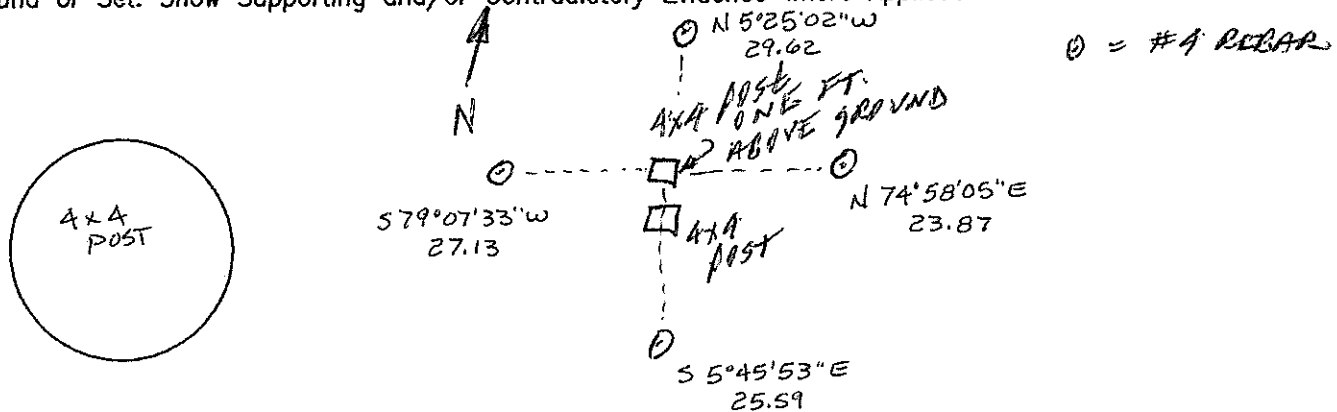 und or Set. Show Supporting and/or Contradictory Evidence Where
N 5°25'02"W
29.62
= #4 REBAR
4x4 POST
ONE FT.
ABOVE GROUND
N
4x4
POST
S 79°07'33"W
27.13
N 74°58'05"E
23.87
4x4
POST
S 5°45'53"E
25.59